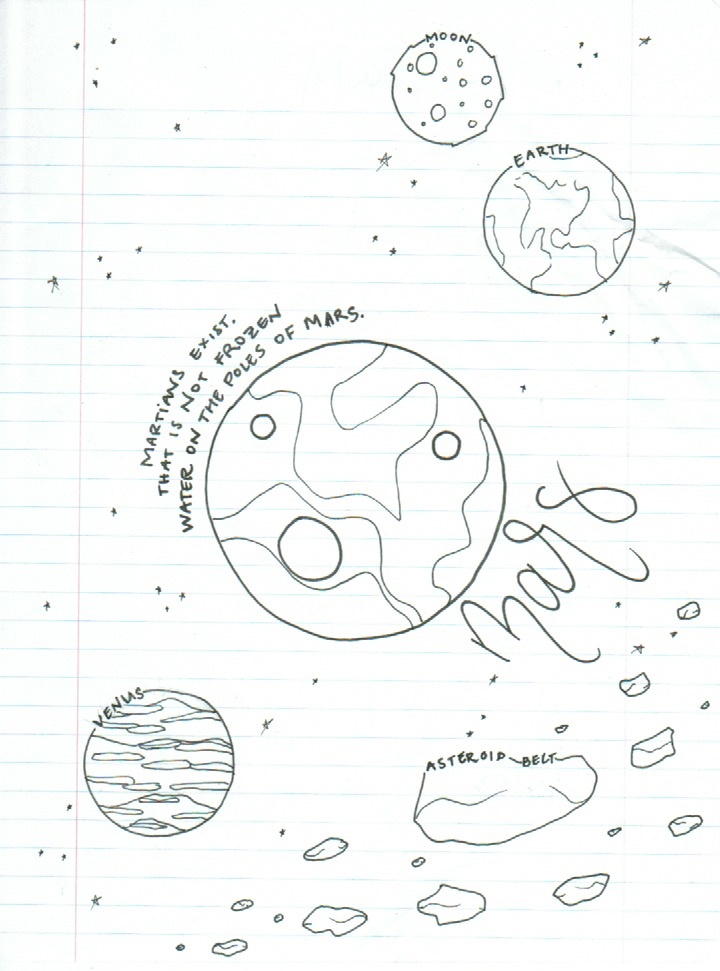 MOON
EARTH
MARTIANS EXIST.
THAT IS NOT FROZEN
WATER ON THE POLES OF MARS.
Mars
VENUS
ASTEROID BELT